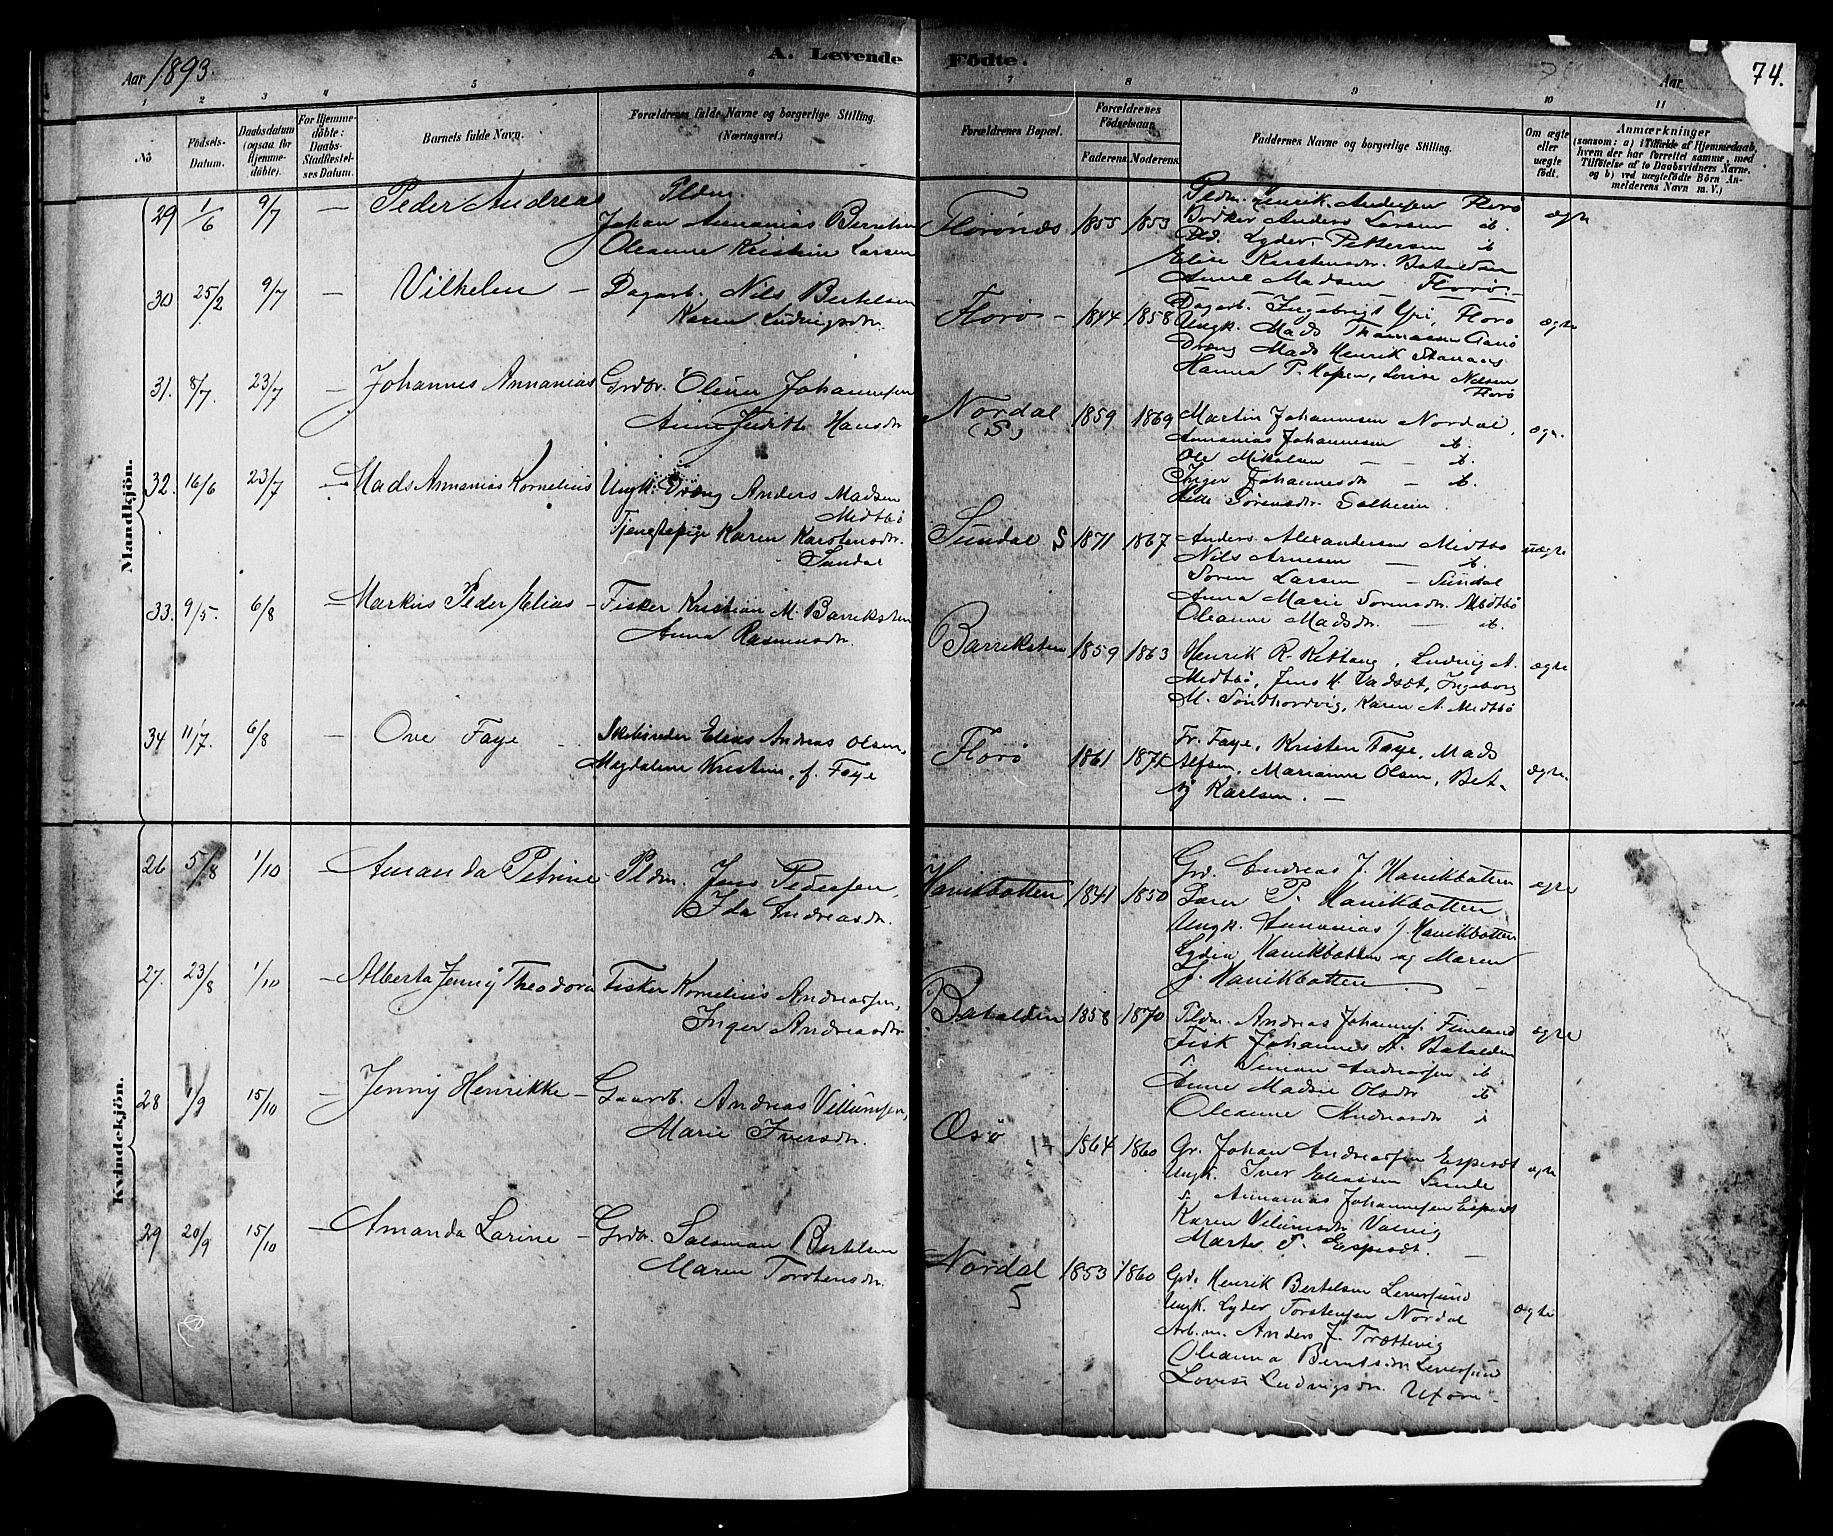 A. Levende Födte.
Aar 1893.
Aar
74.
1 2 3 4 5 6 7 8 9 10 11
No
Födsels-Datum.
Daabsdatum (ogsaa for Hjemme-döbte).
For Hjemme-döbte: Daabs-Stadfæstel-ses Datum.
Barnets fulde Navn.
Forældrenes fulde Navne og borgerlige Stilling. (Næringsvei.)
Forældrenes Bopæl.
Forældrenes Födselsaar.
Faderens. Moderens.
Faddernes Navne og borgerlige Stilling.
Om ægte eller uægte födt.
Anmærkninger
(saasom: a) i Tilfælde af Hjemmedaab, hvem der har forrettet samme, med Tilföielse af to Daabsvidners Navne. og b) ved uægtefödte Börn An-melderens Navn m. V.)
Mandkjön.
29 1/6 9/7 — Peder Andreas
Pldm.
Johan Annanias Berntsen
Oleanne Kristine Larsen
Florönæs 1855 1853
Pldm. Henrik Andersen Florö
Bödker Anders Larsen ib.
Pld. Lyder Pettersen ib
Elise Karstensdr. Batalden
Anne Madsen — Florö. —
ægte
30 25/2 9/7 — Vilhelm —
Dagarb. Nils Bertelsen
Karen Ludvigsdr.
Florö — 1844 1858
Dagarb. Ingebrigt Yri, Florö
Ungk. Mads Thomassen
Dræng Mads Henrik
Hanna P. Kopen, Lovise Nilsen
Florö
ægte
31. 8/7. 23/7 — Johannes Annanias
Grdbr. Oliver Johannesen
Anne Judith Hansdr
Nordal (S) 1859 1869
Martin Johannesen Nordal,
Annanias Johannesen ib.
Ole Mikalsen — — ib.
Inger Johannesdr — ib.
Sörensdr. Solheim.
ægte
32. 16/6 23/7 — Mads Annanias Kornelius
Ungk. Dræng Anders Madsen
Medtbö
Tjenestepige Karen Karstensdr.
Sundal
Sundal S 1871 1867
Anders Alexandersen Medtbö
Nils Arnesen — ib.
Sören Larsen — Sundal
Anna Marie Sörensdr. Medtbö
Oleanne Madsdr. — ib.
uægte
33. 9/5. 6/8 — Markus Peder Elias —
Fisker Kristian M. Barreksten
Anna Rasmusdr.
Barreksten 1859 1863
Henrik R. Rettang, Ludvig A.
Medtbö, Jens M. Vadset, Ingeborg
M. Söndhordvig, Karen A. Medtbö
ægte
34 11/7. 6/8 — Ove Faye —
Skibsreder Elias Andreas Olsen,
Magdalene Kristine, f. Faye
Florö 1861 1871
Fr. Faye, Kristen Faye, Mads
Alfsen, Marianne Olsen, Bet-
sy Karlsen. —
ægte.
Kvindekjön.
26 5/8 1/10 — Amanda Petrine —
Pldm. Jens Pedersen,
Ida Andreasdr.
Hanikbotten 1841 1850
Grd. Andreas J. Hanikbotten
P. Hanikbotten,
Ungk. Annanias J Hanikbotten
Lydia Hanikbotten og Maren
J. Hanikbotten
ægte
27. 23/8 1/10 — Alberta Jenny Theodora
Fisker Kornelius Andreassen,
Inger Andreasdr
Batalden 1858 1870
Pldm. Andreas Johannes. Femland
Fisk Johannes A. Batalden
Simon Andreassen ib
Anne Madsie Olsdr ib
Oleanne Andreasdr
ægte
28 1/9 15/10 — Jenny Henrikke —
Gaardb. Andreas Villumsen,
Marie Iversdr.
Oesö 1864 1860
Gr. Johan Andreassen Espesæt
Ungk. Iver Eliassen Sunde
Annanias Johannessen Espesæt
Karen Villumsdr
Marte J. Espesæt. —
ægte
29 20/9 15/10 — Amanda Larine —
Grdbr. Salomon Bertelsen
Maren Torstensdr.
Nordal S 1853 1860
Grd. Henrik Bertelsen Leversund
Ungk. Lyder Torstensen Nordal
Arb.m. Anders J. Trættevig
Oleanna Berntsdr Leversund
Lovise Ludvigsdr.
ægte